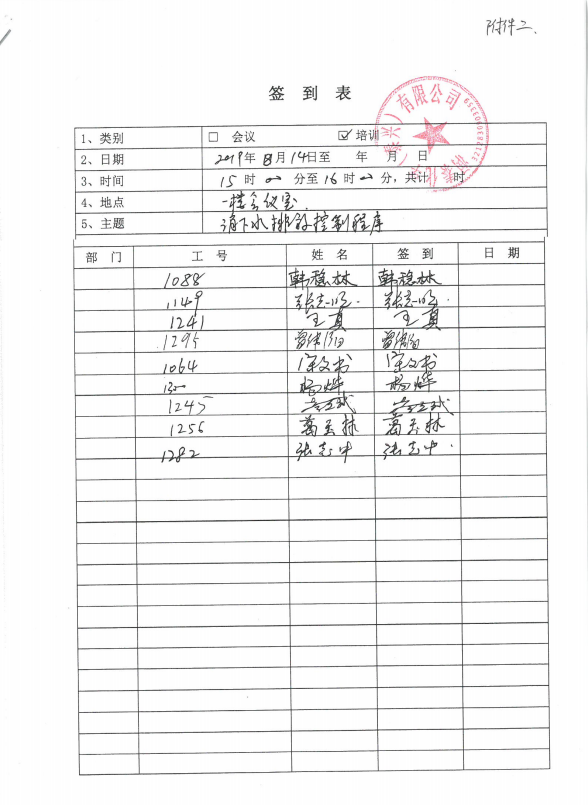 附件二.
签 到 表
1、类别 □ 会议 ☑ 培训
2、日期 2019年8月14日至 年 月 日
3、时间 15时00分至16时00分，共计 时
4、地点 一楼会议室.
5、主题 清下水排放控制程序
部 门 工 号 姓 名 签 到 日 期
1088 韩稳林 韩稳林
1149
1241 王真 王真
1295
1064 宋文书 宋文书
1300 杨烨 杨烨
1245
1256 葛玉林 葛玉林
1282 张志中 张志中.
泰兴）有限公司